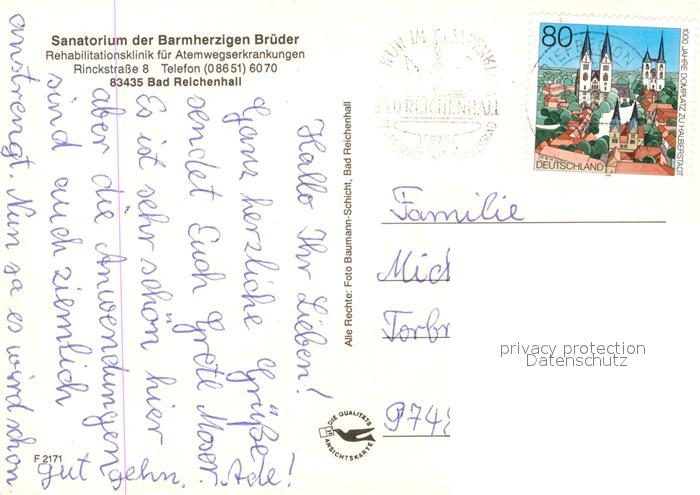 Sanatorium der Barmherzigen Brüder
Rehabilitationsklinik für Atemwegserkrankungen
Rinckstraße 8 Telefon (08651) 6070
83435 Bad Reichenhall
Hallo Ihr Lieben!
Ganz herzliche Grüße
sendet Euch Grete Moser
Es ist sehr schön hier
aber die Anwendungen
sind auch ziemlich
anstrengt. Nun ja es wird schon
gut gehn. Ade!
F 2171
Alle Rechte: Foto Baumann-Schicht, Bad Reichenhall
DIE QUALITÄTS
ANSICHTSKARTE
BAD REICHENHALL
80
1000 JAHRE DOMPLATZ ZU HALBERSTADT
DEUTSCHLAND
Familie
Mich
Torbr
9748
privacy protection
Datenschutz